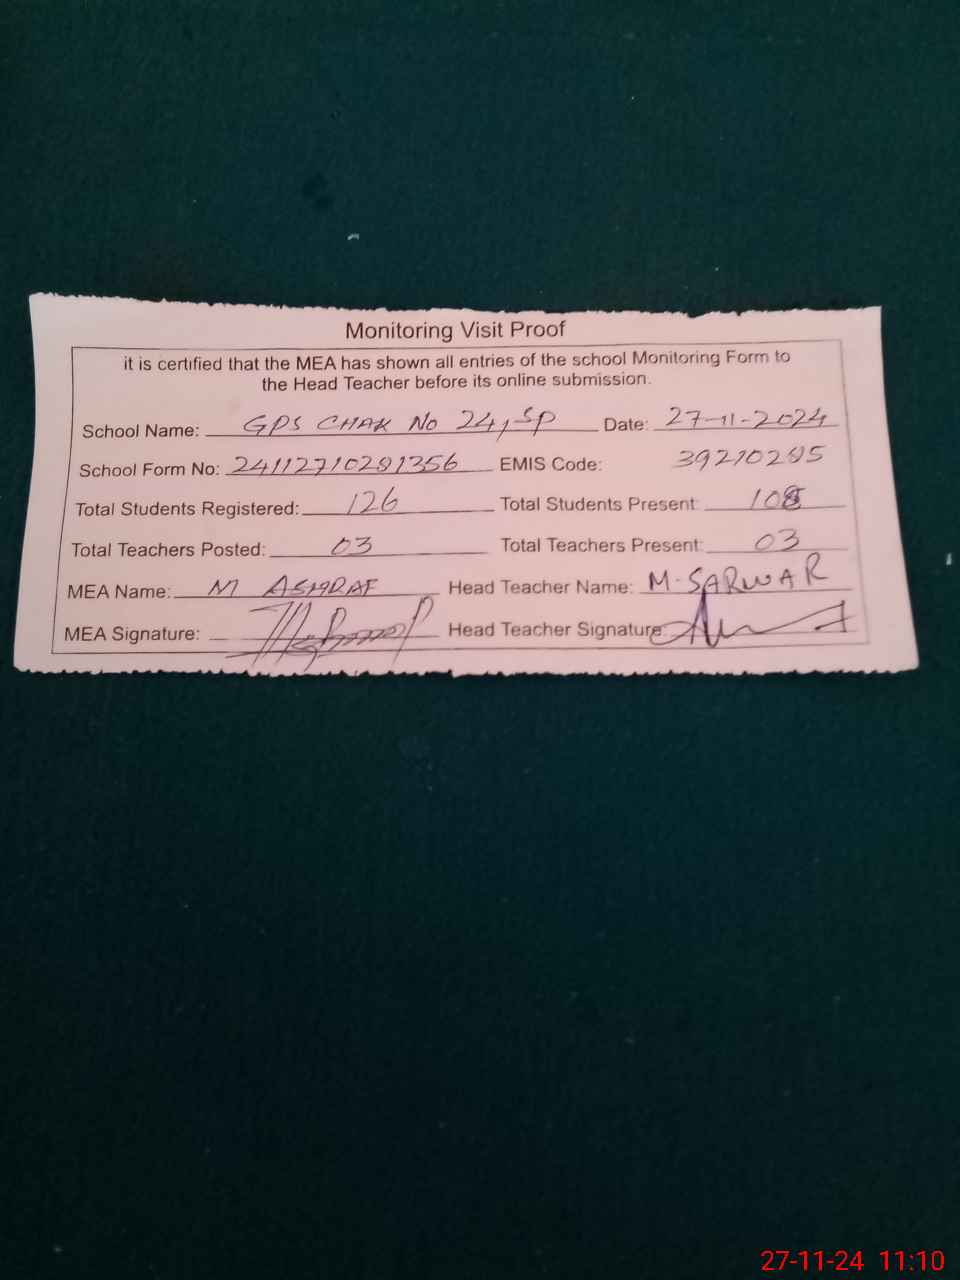 Monitoring Visit Proof
it is certified that the MEA has shown all entries of the school Monitoring Form to
the Head Teacher before its online submission.
School Name: GPS CHAK No 24, SP Date: 27-11-2024
School Form No: EMIS Code:
Total Students Registered: 126 Total Students Present: 108
Total Teachers Posted: 03 Total Teachers Present: 03
MEA Name: M ASHRAF Head Teacher Name: M. SARWAR
MEA Signature: Head Teacher Signature:
27-11-24 11:10